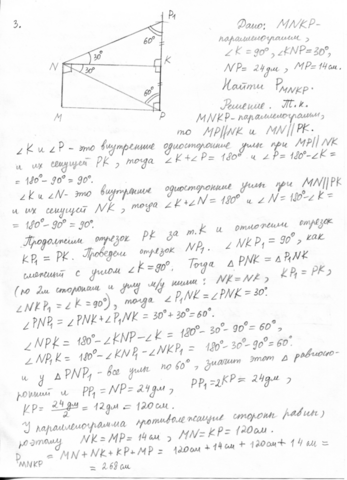 3.
P₁
60°
30°
N
K
30°
60°
M
P
Дано: MNKP-
параллелограмм,
∠K = 90°, ∠KNP = 30°,
NP = 24дм, MP = 14см.
Найти P_MNKP.
Решение. Т.к.
MNKP - параллелограмм,
то MP∥NK и MN∥PK.
∠K и ∠P - это внутренние односторонние углы при MP∥NK
и их секущей PK, тогда ∠K + ∠P = 180° и ∠P = 180° - ∠K =
= 180° - 90° = 90°.
∠K и ∠N - это внутренние односторонние углы при MN∥PK
и их секущей NK, тогда ∠K + ∠N = 180° и ∠N = 180° - ∠K =
= 180° - 90° = 90°.
Продолжим отрезок PK за т.K и отложим отрезок
KP₁ = PK. Проведем отрезок NP₁. ∠NKP₁ = 90°, как
смежный с углом ∠K = 90°. Тогда △PNK = △P₁NK
(по 2м сторонам и углу м/у ними: NK = NK, KP₁ = PK,
∠NKP₁ = ∠K = 90°), тогда ∠P₁NK = ∠PNK = 30°.
∠PNP₁ = ∠PNK + ∠P₁NK = 30° + 30° = 60°,
∠NPK = 180° - ∠KNP - ∠K = 180° - 30° - 90° = 60°,
∠NP₁K = 180° - ∠KNP₁ - ∠NKP₁ = 180° - 30° - 90° = 60°.
У △PNP₁ - все углы по 60°, значит этот △ равносто-
ронний и PP₁ = NP = 24дм, PP₁ = 2KP = 24дм,
KP = 24дм/2 = 12дм = 120см.
У параллелограмма противолежащие стороны равны,
поэтому NK = MP = 14см, MN = KP = 120см.
P_MNKP = MN + NK + KP + MP = 120см + 14см + 120см + 14см =
= 268см